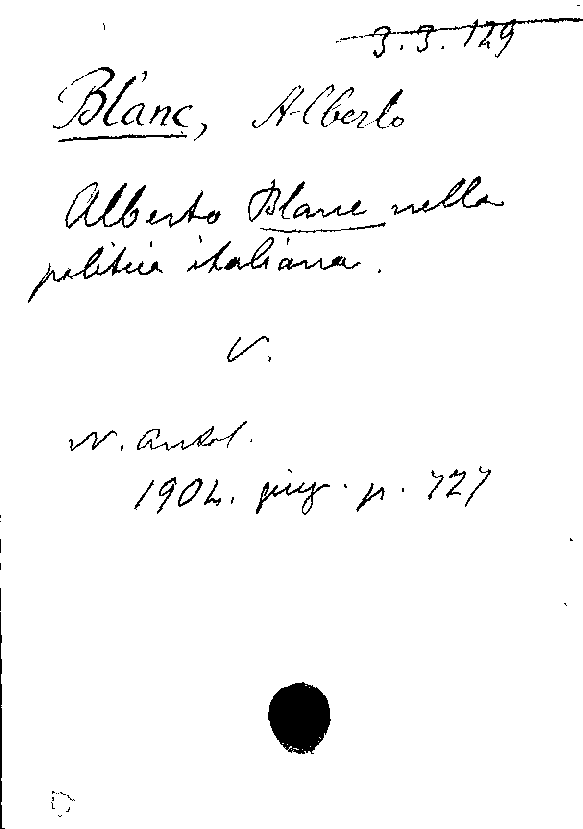 3.3.129
Blanc, Alberto
Alberto Blanc nella
politica italiana.
V.
N. Antol.
1904. giug. p. 727